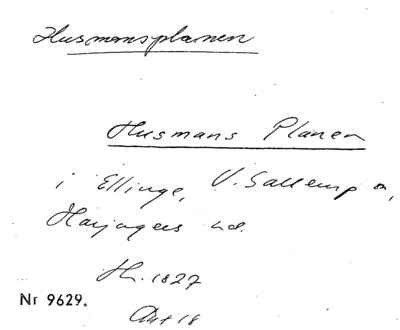 Husmansplanen
Husmans Planen
i Ellinge, V. Sallerup sn,
Harjagers hd.
1827
Nr 9629.
Akt 18